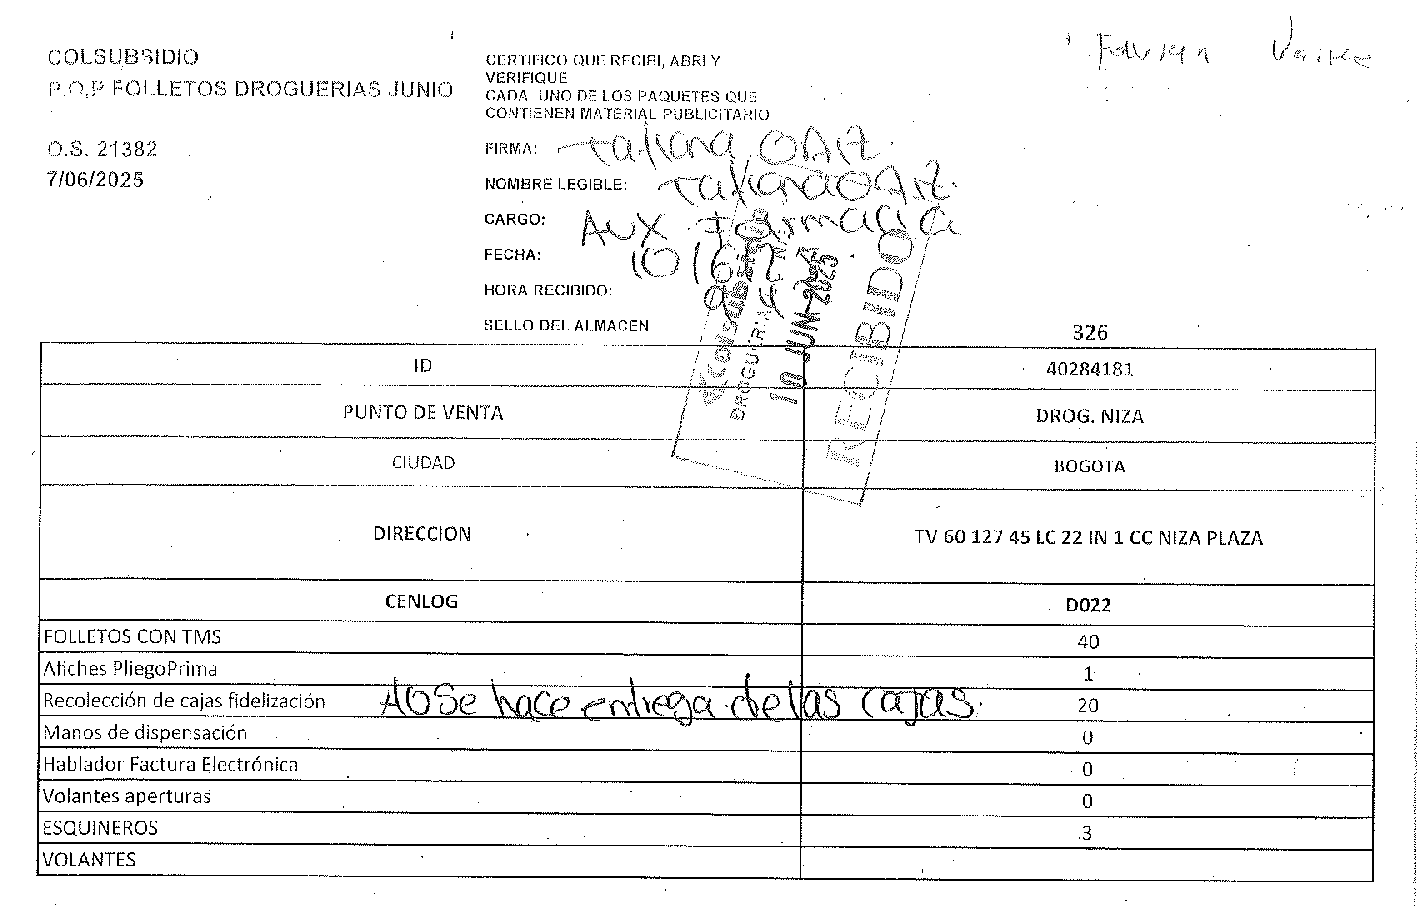 COLSUBSIDIO
P.O.P FOLLETOS DROGUERIAS JUNIO
O.S. 21382
7/06/2025
CERTIFICO QUE RECIBI, ABRI Y
VERIFIQUE
CADA UNO DE LOS PAQUETES QUE
CONTIENEN MATERIAL PUBLICITARIO
FIRMA: Tatiana
NOMBRE LEGIBLE: Tatiana
CARGO: AUX Farmacia
FECHA: 10/6/
HORA RECIBIDO:
SELLO DEL ALMACEN
JUN 2025
RECIBIDO
326
ID 40284181
PUNTO DE VENTA DROG. NIZA
CIUDAD BOGOTA
DIRECCION TV 60 127 45 LC 22 IN 1 CC NIZA PLAZA
CENLOG D022
FOLLETOS CON TMS 40
Afiches PliegoPrima 1
Recolección de cajas fidelización se hace entrega de las cajas. 20
Manos de dispensación 0
Hablador Factura Electrónica 0
Volantes aperturas 0
ESQUINEROS 3
VOLANTES